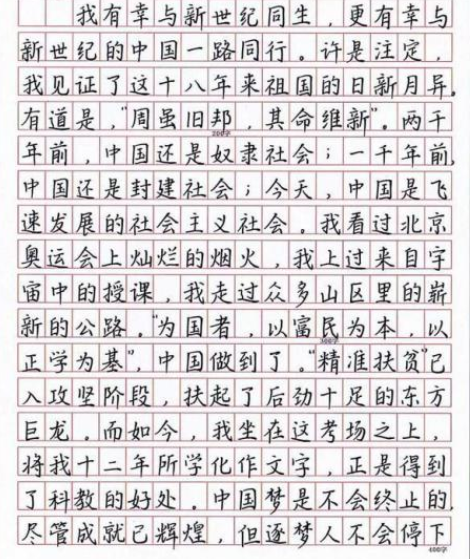 我有幸与新世纪同生，更有幸与
新世纪的中国一路同行。许是注定，
我见证了这十八年来祖国的日新月异。
有道是，“周虽旧邦，其命维新”。两千
200字
年前，中国还是奴隶社会；一千年前，
中国还是封建社会；今天，中国是飞
速发展的社会主义社会。我看过北京
奥运会上灿烂的烟火，我上过来自宇
宙中的授课，我走过众多山区里的崭
新的公路。“为国者，以富民为本，以
300字
正学为基”，中国做到了。“精准扶贫”已
入攻坚阶段，扶起了后劲十足的东方
巨龙。而如今，我坐在这考场之上，
将我十二年所学化作文字，正是得到
了科教的好处。中国梦是不会终止的，
尽管成就已辉煌，但逐梦人不会停下
400字